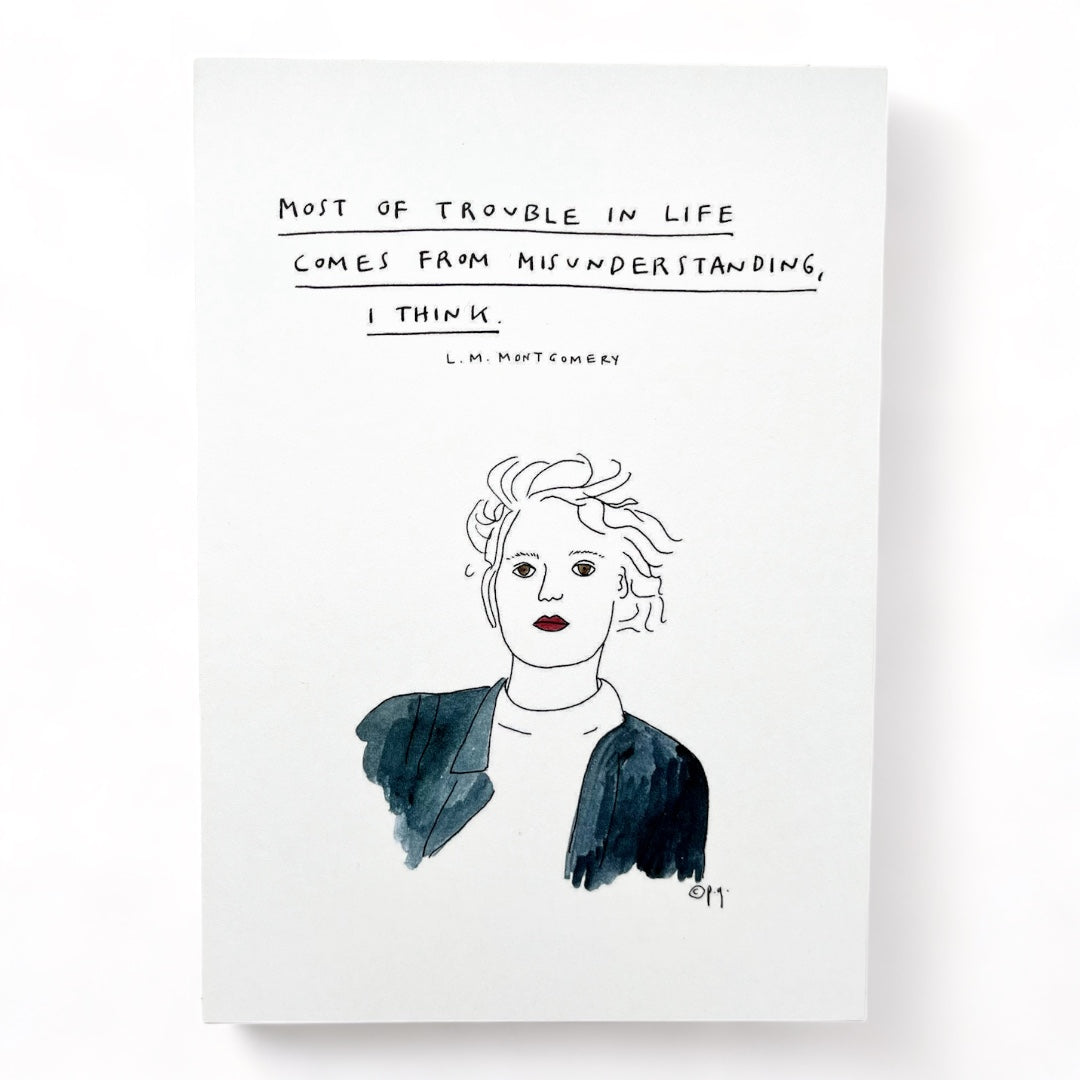 MOST OF TROUBLE IN LIFE
COMES FROM MISUNDERSTANDING,
I THINK.
L.M. MONTGOMERY
©p.g.